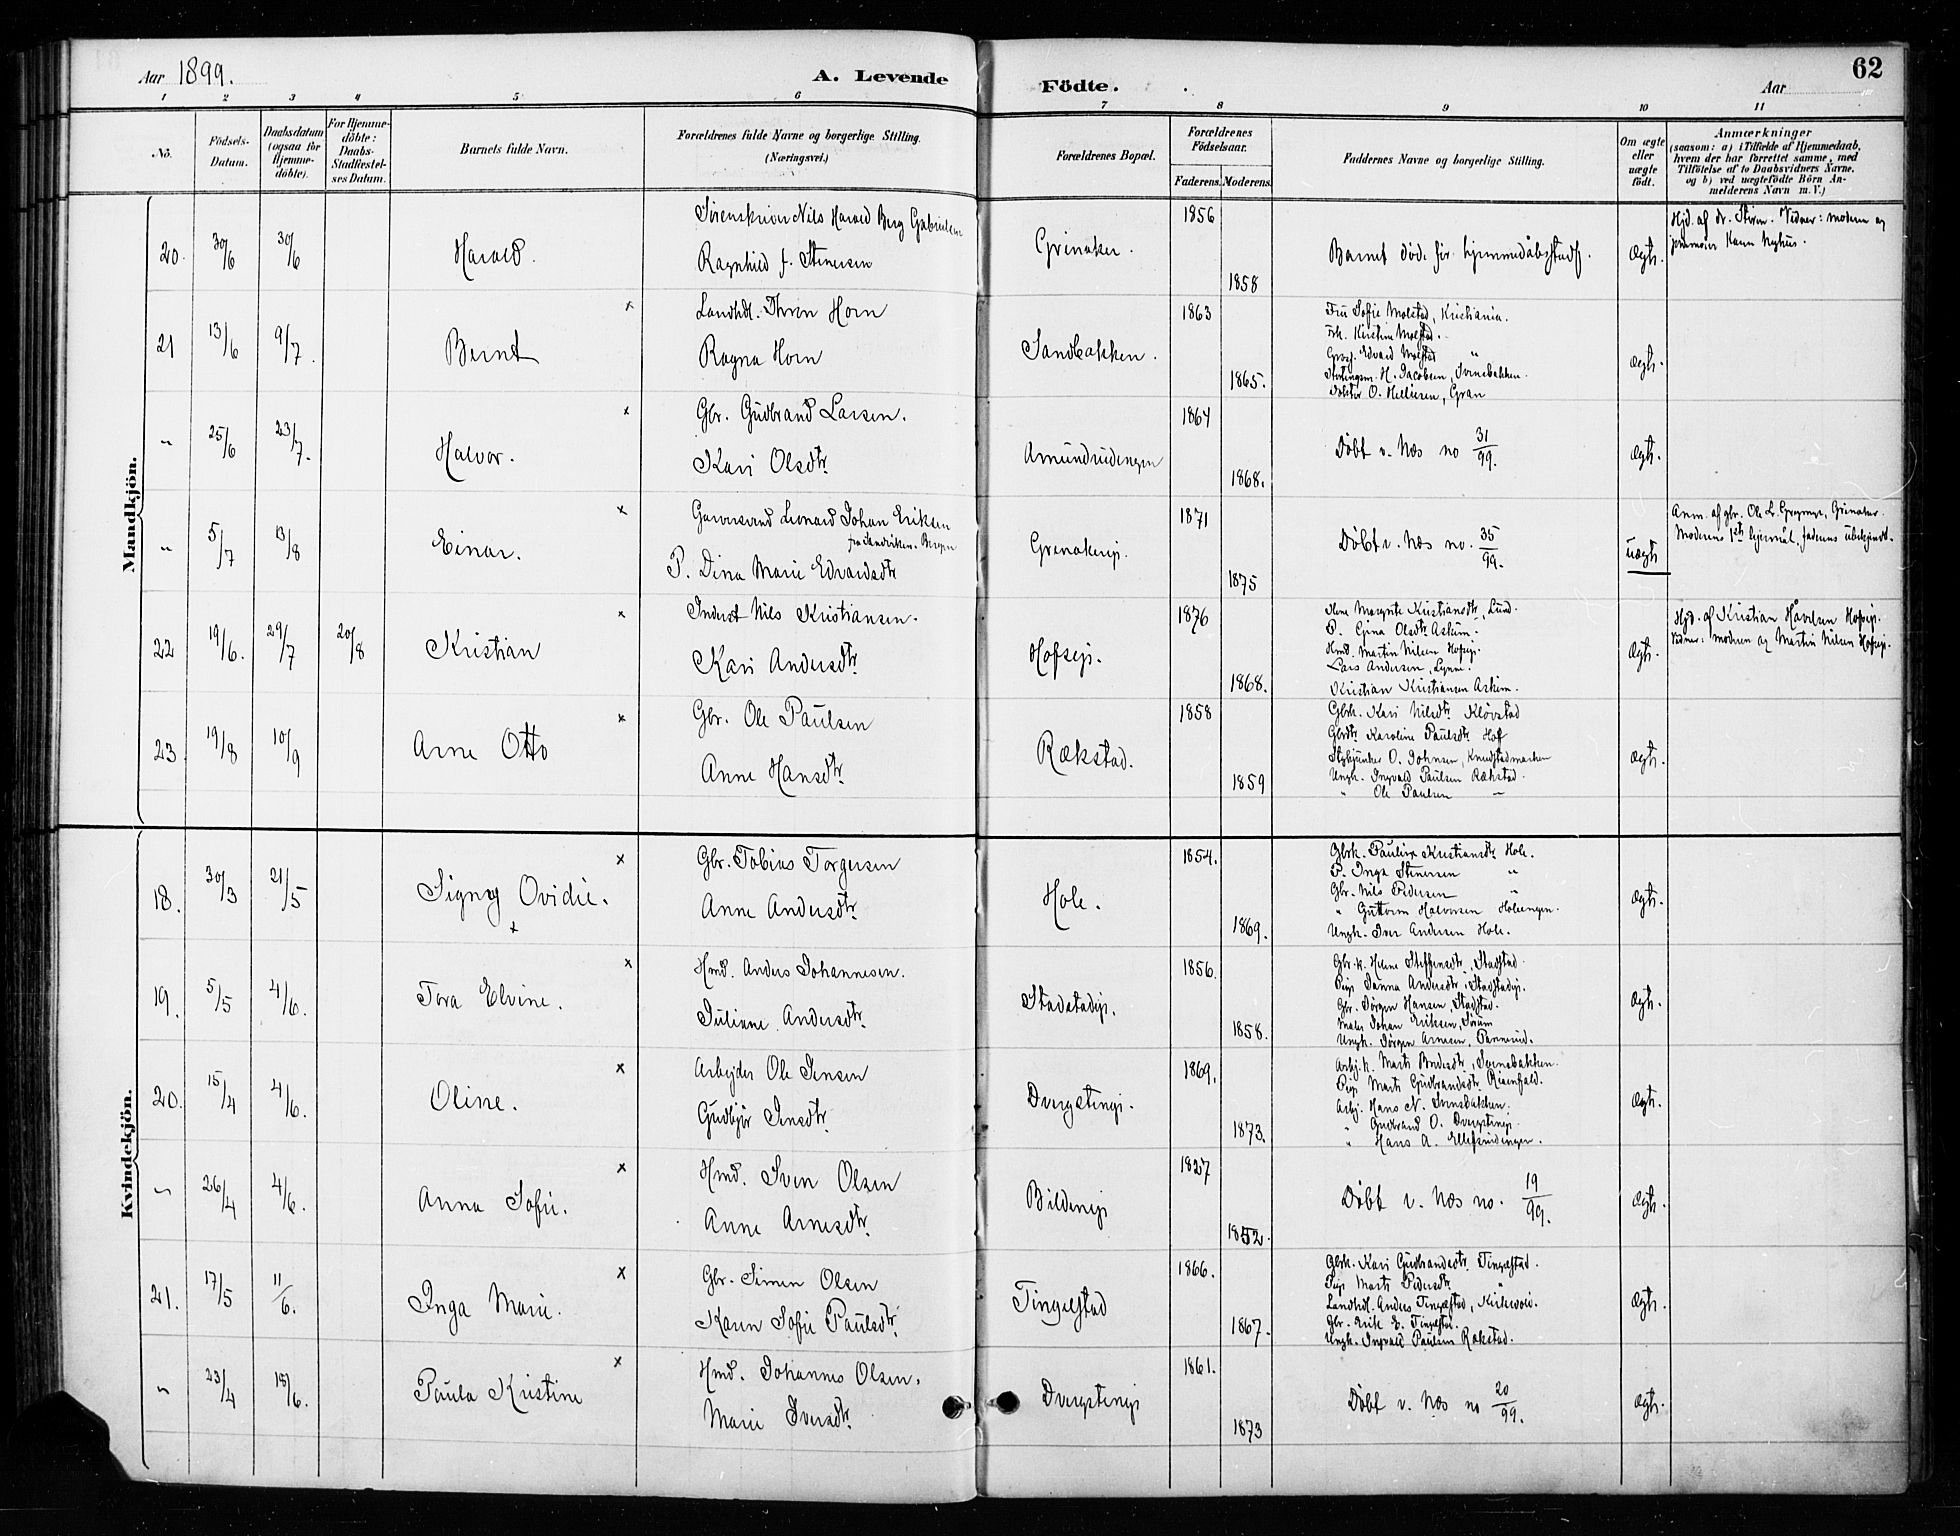 Aar 1899.
A. Levende
Födte.
Aar
62
1 2 3 4 5 6 7 8 9 10 11
No.
Födsels-
Datum.
Daabsdatum
(ogsaa for
Hjemme-
döbte).
For Hjemme-
döbte:
Daabs-
Stadfæstel-
ses Datum.
Barnets fulde Navn.
Forældrenes fulde Navne og borgerlige Stilling.
(Næringsvei.)
Forældrenes Bopæl.
Forældrenes
Födselsaar.
Faderens. Moderens.
Faddernes Navne og borgerlige Stilling.
Om ægte
eller
uægte
födt.
Anmærkninger
(saasom: a) i Tilfælde af Hjemmedaab,
hvem der har forrettet samme, med
Tilföielse af to Daabsvidners Navne.
og b) ved uægtefödte Börn An-
melderens Navn m. V.)
Mandkjön.
20. 30/6 30/6 Harald.
Sorenskriver Nils Harald Berg Gabrielsen
Ragnhild f. Stenersen
Grinaker. 1856 1858
Barnet døde før hjemmedåbsstadf.
ægte.
Hjd. af dr. Vidner: moderen og
jormoder Karen
21 13/6 9/7. Bernt
Landhdl. Thron Horn
Ragna Horn
Sandbakken. 1863 1865.
Fru Sofie Molstad, Kristiania.
Frk. Kirstine Molstad.
Edvard Molstad "
H. Jacobsen, Svinebakken.
Doktor O. Gran
ægte.
" 25/6 23/7. Halvor.
Gbr. Gudbrand Larsen.
Kari Olsdtr.
Amundrudengen 1864 1868.
Døbt v. Næs no 31/99.
ægte.
" 5/7 13/8 Einar.
Garversvend Leonard Johan Eriksen
Bergen
P. Dina Marie Edvardsdtr
Grinakerej. 1871 1875
Døbt v. Næs no. 35/99.
uægte
Anm. af gbr. Ole L. Grinaker.
Moderens 1ste lejermål, faderens ubekjendt.
22 19/6. 29/7 20/8 Kristian
Inderst Nils Kristiansen.
Kari Andersdtr.
Hofsej. 1876 1868.
Margrete Kristiansdtr, Lund.
P. Gina Olsdtr. Askim.
Hmd. Martin Nilsen Hofsej.
Lars Andersen, Lynne.
Kristian Kristiansen Askim.
ægte.
Hjd. af Kristian Håvelsen Hofsej.
Vidner: moderen og Martin Nilsen Hofsej.
23 19/8 10/9 Arne Otto
Gbr. Ole Paulsen
Anne Hansdtr.
Rækstad. 1858 1859
Gbrk. Kari Nilsdtr. Kløvstad
Gbrdtr. Karoline Paulsdtr. Hof
O. Johnsen, Knudstadmarken
Ungk. Ingvald Paulsen Rækstad.
" Ole Paulsen "
ægte.
Kvindekjön.
18. 30/3 21/5 Signy Ovidie.
Gbr. Tobias Torgersen
Anne Andersdtr.
Hole. 1854. 1869.
Gbrk. Pauline Kristiansdtr. Hole.
P. Inga Stenersen "
Gbr. Nils Pedersen "
" Guttorm Halvorsen Holeengen.
Ungk. Iver Andersen Hole.
ægte.
19. 5/5 4/6. Tora Elvine.
Hmd. Anders Johannesen.
Juliane Andersdtr.
Stadstadej. 1856. 1858.
Gbr.k. Helene Steffensdtr., Stadstad.
Pige Janna Andersdtr., Stadstadej.
Gbr. Jørgen Hansen, Stadstad.
Maler Johan Eriksen, Sørum
Ungk. Jørgen Arnesen,
ægte.
20. 15/4 4/6. Oline.
Arbejder Ole Jensen
Gudbjør Jensdtr.
Dvergstenej. 1869. 1873.
Arbj.k. Marte Svinebakken.
Pige Marte Gudbrandsdtr.
Arbj. Hans N. Svinebakken.
" Gudbrand O. Dvergstenej.
" Hans A. Ellefsrudengen.
ægte.
" 26/4 4/6. Anna Sofie.
Hmd. Sven Olsen
Anne Arnesdtr.
Bildenej 1827 1852.
Døbt v. Næs no. 19/99.
ægte.
21. 17/5 11/6. Inga Marie.
Gbr. Simen Olsen
Karen Sofie Paulsdtr.
Tingelstad 1866. 1867.
Gbrk. Kari Gudbrandsdtr. Tingelstad.
Pige Marte Pedersdtr. "
Landhdl. Anders Tingelstad, Kirkevold.
Gbr. Erik E. Tingelstad.
Ungk. Ingvald Paulsen Rækstad.
ægte.
" 23/4 18/6. Paula Kristine
Hmd. Johannes Olsen.
Marie Iversdtr.
Dvergstenej 1861. 1873
Døbt v. Næs no 20/99.
ægte.